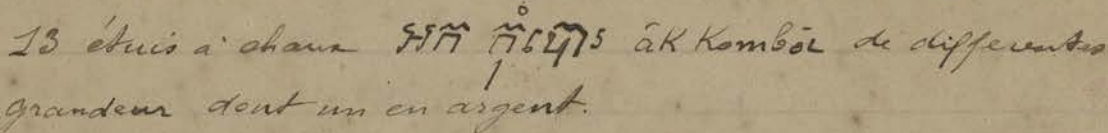 13 étuis à chaux âk Kombôr de differentes
grandeur dont un en argent.